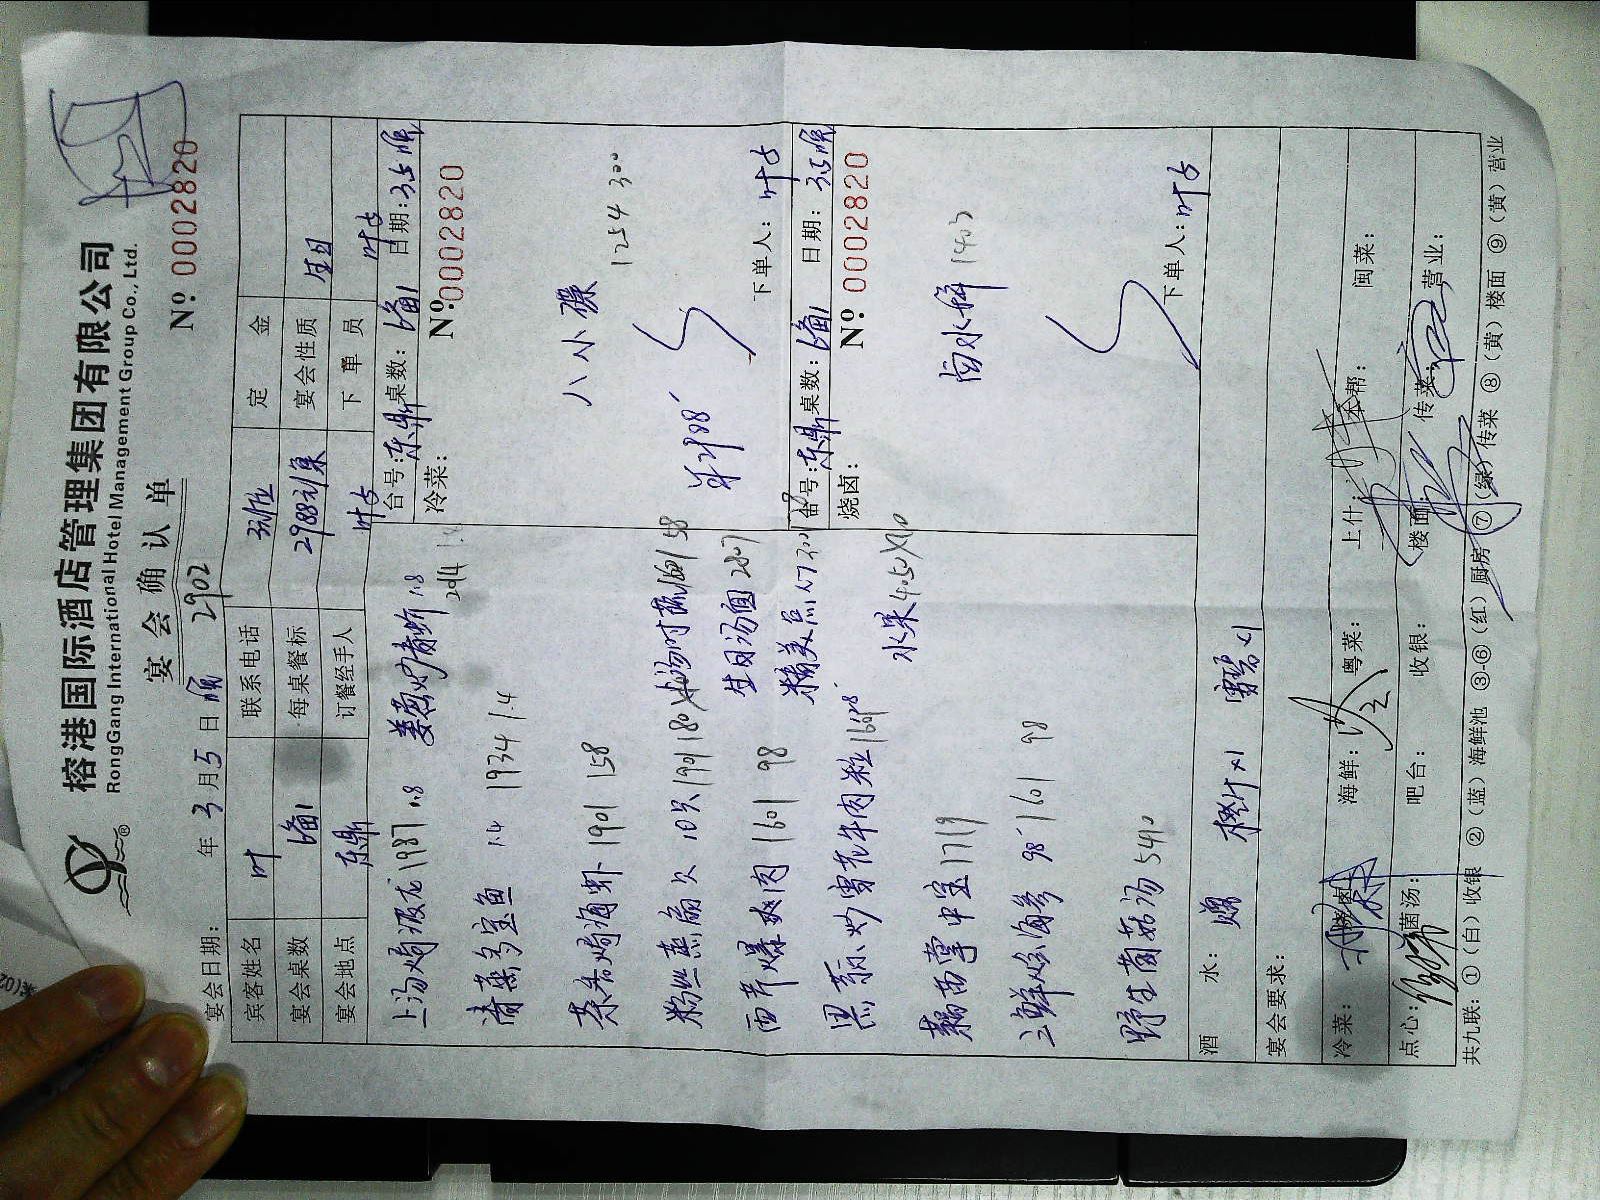 榕港国际酒店管理集团有限公司
RongGang International Hotel Management Group Co., Ltd.
宴会确认单
No: 0002820
宴会日期： 年3月5日晚 2902
宾客姓名 叶 联系电话 定金
宴会桌数 1备1 每桌餐标 2988元/桌 宴会性质 生日
宴会地点 东鼎 订餐经手人 叶 下单员 叶
上汤焗波龙 1987 1.8
姜葱炒青蚧 1.8
清蒸多宝鱼 1.4 1934 1.4
茶香焗海虾 1901 158
粉丝蒸扇贝 10只 1991 180
时蔬 1601 58
西芹爆爽肉 1601 98
生日汤面 2807
黑蒜炒雪花牛肉粒 1601
精美点心
水果
掌中宝 1719
三鲜烩海参 98 1601 98
野生菌菇汤 5490
台号：东鼎 桌数：1备1 日期：3.5晚
冷菜：
No: 0002820
八小碟
1254 300
单2988
下单人：叶
台号：东鼎 桌数：1备1 日期：3.5晚
烧卤：
No: 0002820
卤水拼 1403
下单人：叶
酒水： 赠 橙汁×1 雪碧×1
宴会要求：
冷菜： 烧卤： 海鲜： 粤菜： 上什： 本帮： 闽菜：
点心： 菌汤： 吧台： 收银： 楼面： 传菜： 营业：
共九联：①（白）收银 ②（蓝）海鲜池 ③-⑥（红）厨房 ⑦（绿）传菜 ⑧（黄）楼面 ⑨（黄）营业